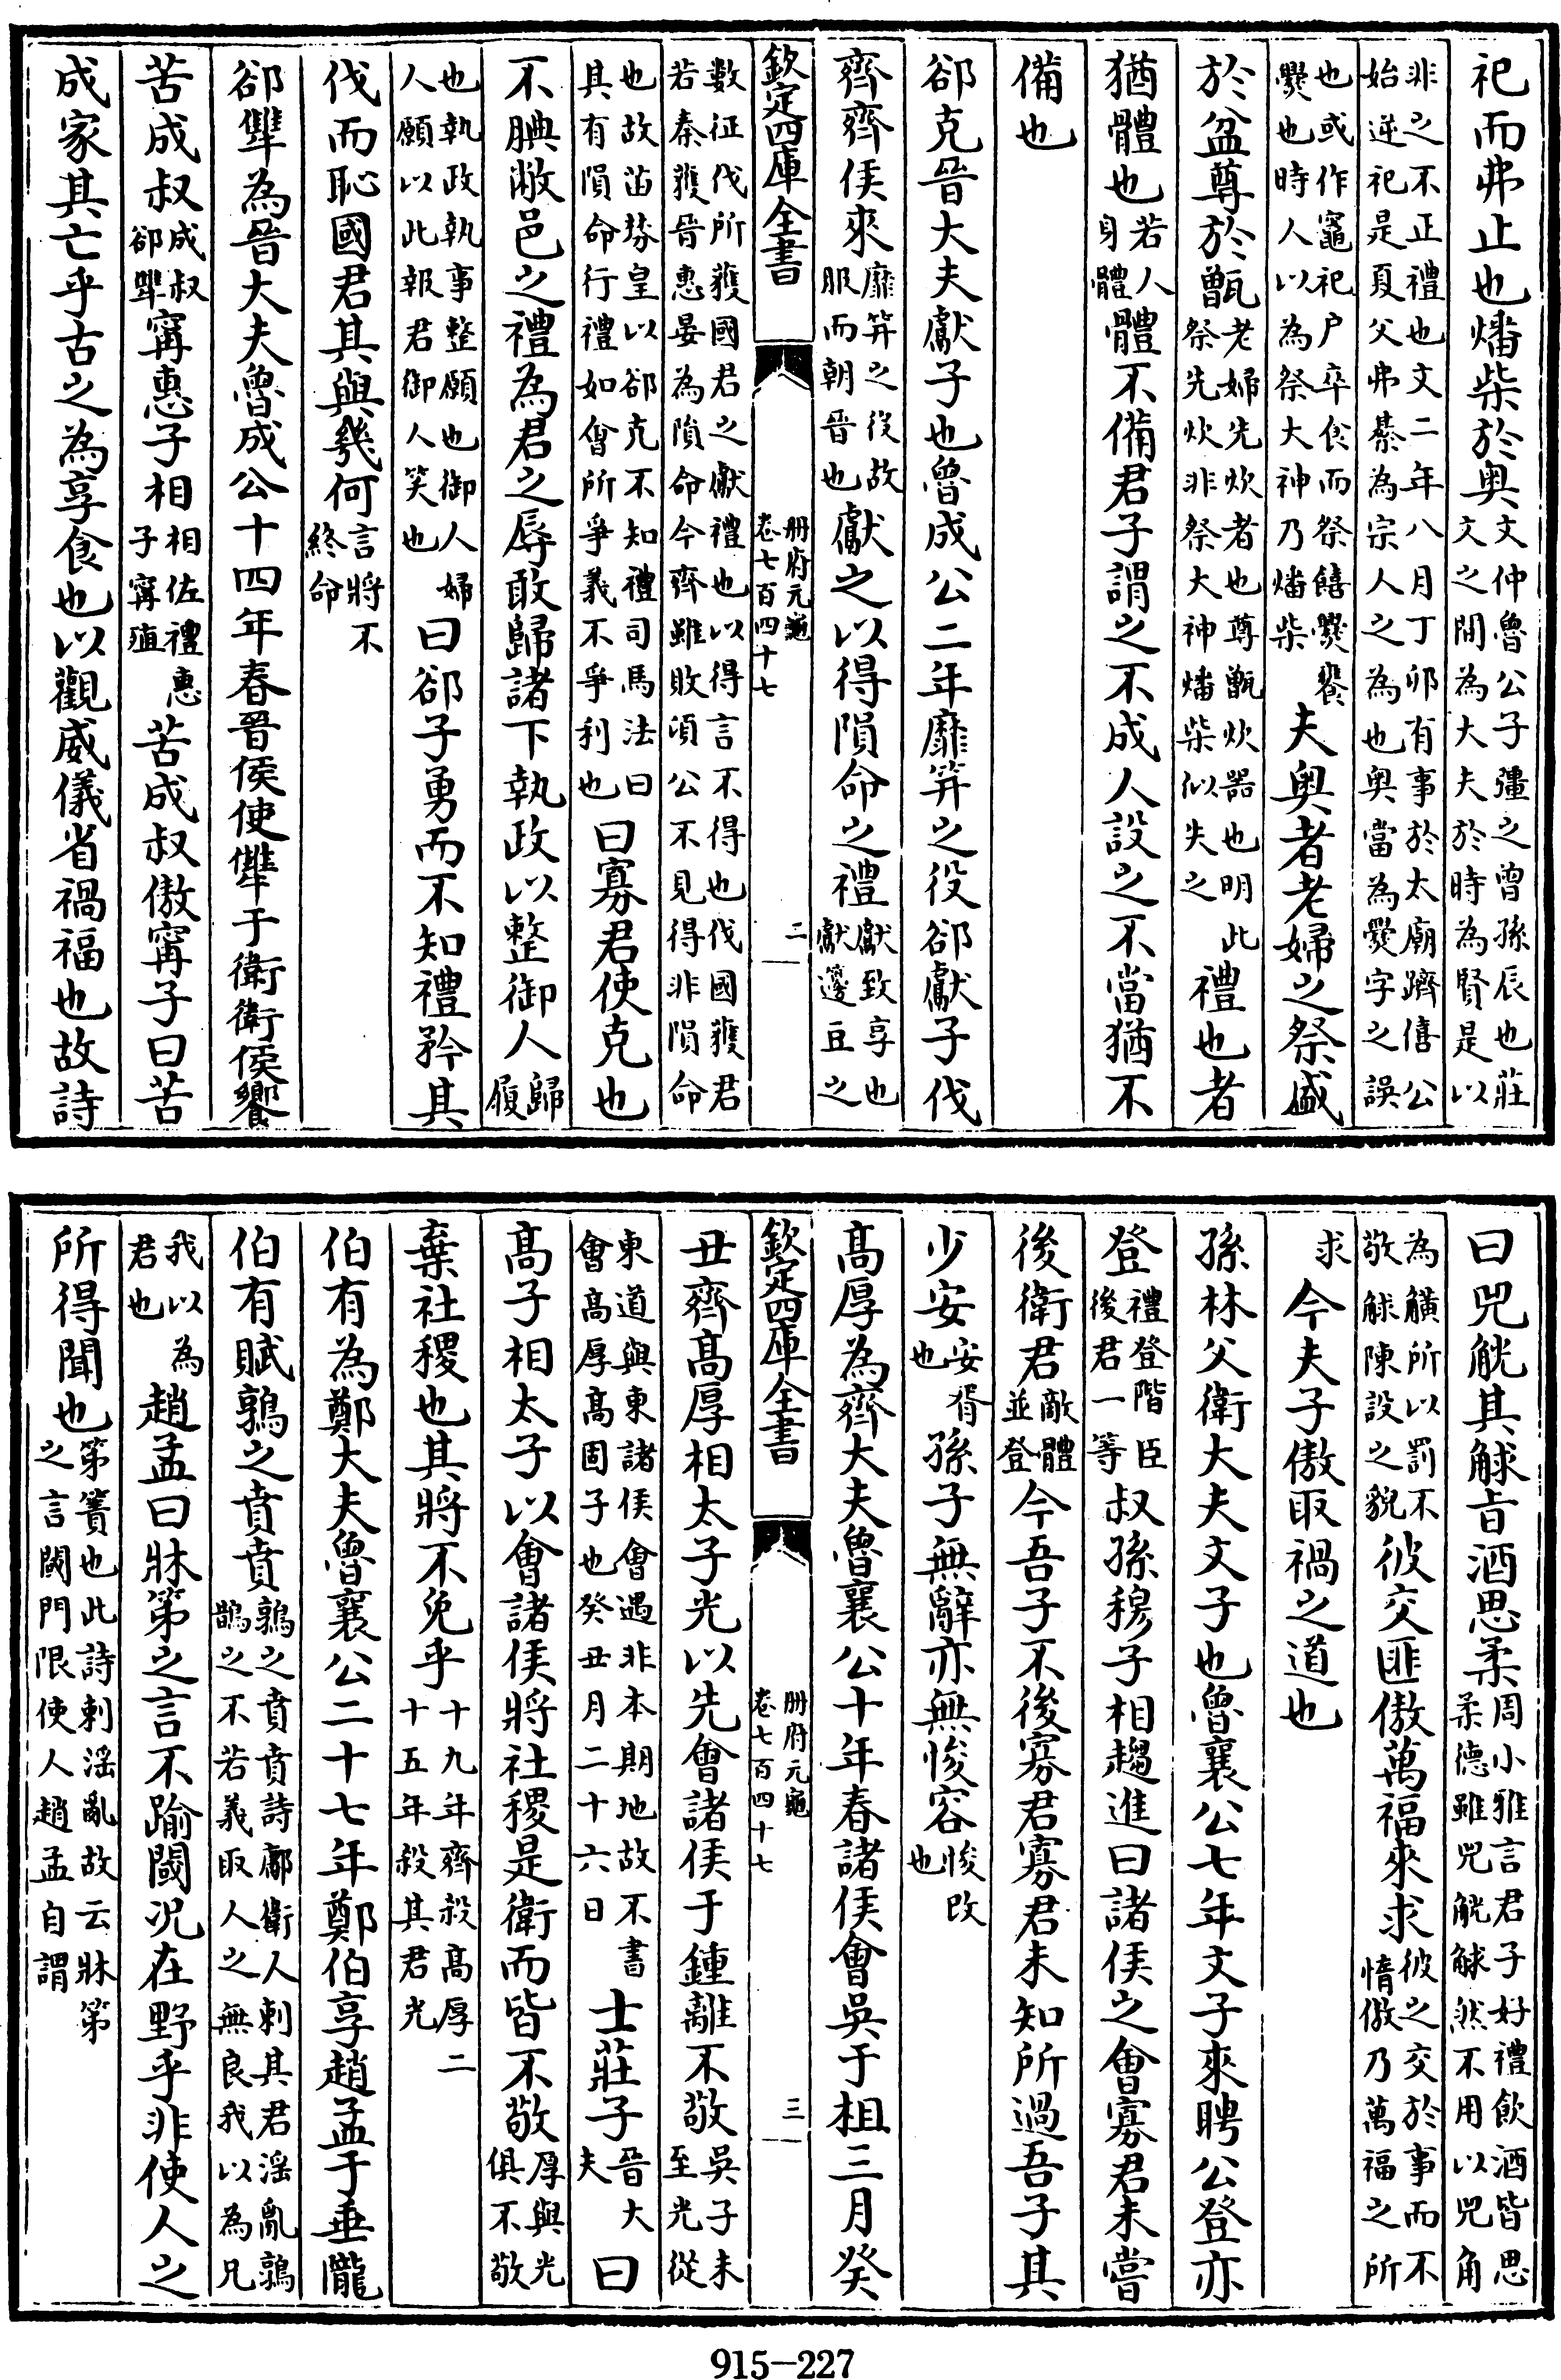 祀而弗止也燔柴於奥文仲魯公子彄之曾孫辰也莊文之間為大夫於時為賢是以
非之不正禮也文二年八月丁卯有事於太廟躋僖公始逆祀是夏父弗綦為宗人之為也奥當為爨字之誤
也或作竈祀戶卒食而祭饎爨饔爨也時人以為祭大神乃燔柴夫奥者老婦之祭盛
於盆尊於甑老婦先炊者也尊甑炊器也明此祭先炊非祭大神燔柴似失之禮也者
猶體也若人身體體不備君子謂之不成人設之不當猶不
備也
郤克晉大夫獻子也魯成公二年靡筓之役郤獻子伐
齊齊侯來靡筓之役故服而朝晉也獻之以得隕命之禮獻致享也獻籩豆之
欽定四庫全書 册府元龜 卷七百四十七 二
數征伐所獲國君之獻禮也以得言不得也伐國獲君若秦獲晉惠晏為隕命今齊雖敗頃公不見得非隕命
也故苗棼皇以郤克不知禮司馬法曰其有隕命行禮如會所爭義不爭利也曰寡君使克也
不腆敝邑之禮為君之辱敢歸諸下執政以整御人歸履
也執政執事整願也御人婦人願以此報君御人笑也曰郤子勇而不知禮矜其
伐而恥國君其與幾何言將不終命
郤犨為晉大夫魯成公十四年春晉侯使犨于衛衛侯饗
苦成叔成叔郤犨甯惠子相相佐禮惠子甯殖苦成叔傲甯子曰苦
成家其亡乎古之為享食也以觀威儀省禍福也故詩
曰兕觥其觩旨酒思柔周小雅言君子好禮飲酒皆思柔德雖兕觥觩然不用以兕角
為觵所以罰不敬觩陳設之貌彼交匪傲萬福來求彼之交於事而不惰傲乃萬福之所
求今夫子傲取禍之道也
孫林父衛大夫文子也魯襄公七年文子來聘公登亦
登禮登階臣後君一等叔孫穆子相趨進曰諸侯之會寡君未嘗
後衛君敵體並登今吾子不後寡君寡君未知所過吾子其
少安安徐也孫子無辭亦無悛容悛改也
高厚為齊大夫魯襄公十年春諸侯會吳于柤三月癸
欽定四庫全書 册府元龜 卷七百四十七 三
丑齊高厚相太子光以先會諸侯于鍾離不敬吳子未至光從
東道與東諸侯會遇非本期地故不書會高厚高固子也癸丑月二十六日士莊子晉大夫曰
高子相太子以會諸侯將社稷是衛而皆不敬厚與光俱不敬
棄社稷也其將不免乎十九年齊殺高厚二十五年殺其君光
伯有為鄭大夫魯襄公二十七年鄭伯享趙孟于垂隴
伯有賦鶉之賁賁鶉之賁賁詩鄘衛人刺其君淫亂鶉鵲之不若義取人之無良我以為兄
我以為君也趙孟曰牀第之言不踰閾况在野乎非使人之
所得聞也第簀也此詩刺淫亂故云牀第之言閾門限使人趙孟自謂
915-227